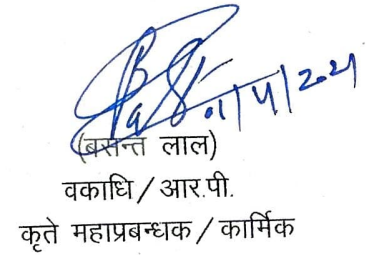 01/4/2021
(बसन्त लाल)
वकाधि / आर.पी.
कृते महाप्रबन्धक / कार्मिक